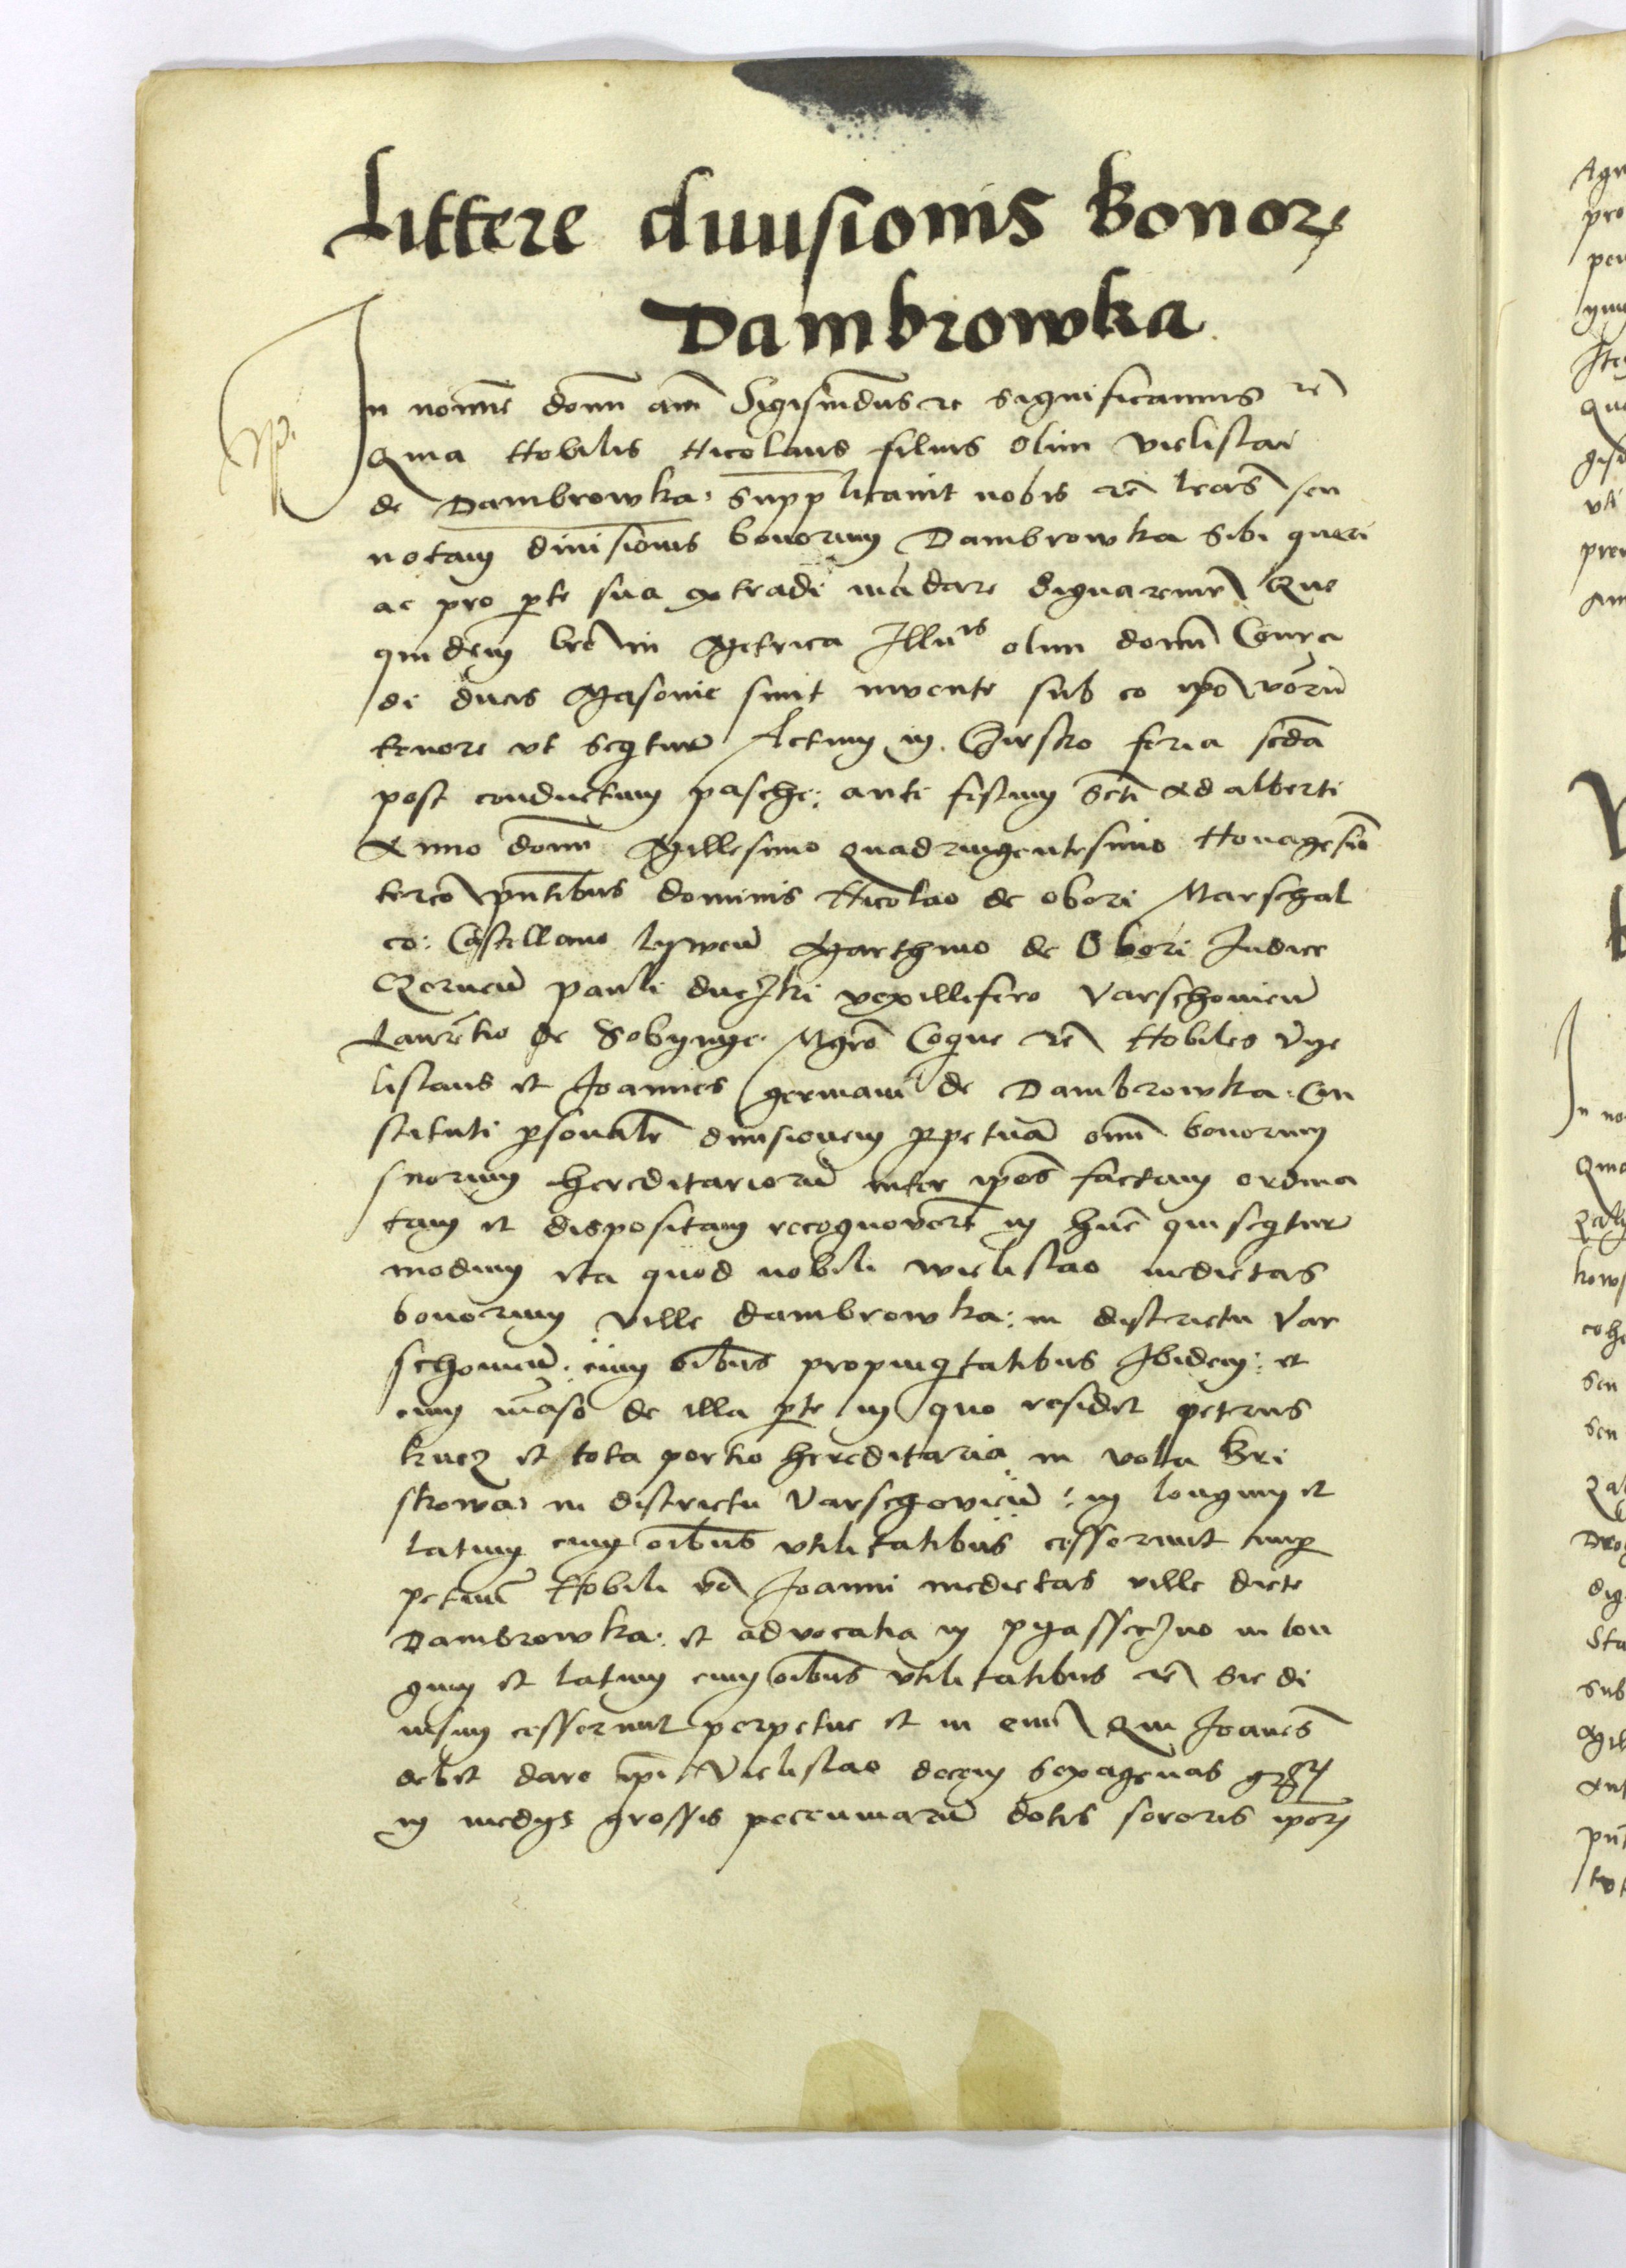 Littere diuisionis bonor
Dambrowka
In nomine domi am Sigismdus rc significamus rc
Quia Nobilis Nicolaus filius olim vielislai
de Dambrowka supplicauit nobis rc lras seu
notam diuisionis bonorum Dambrowka sibi queri
ac pro pte sua extradi madare dignaremr Que
quidem lre in Metrica Illu olim domi Conra
di ducis Masouie sunt inuente sub eo ipo voru
tenore vt seqtur Actum in Czirsko feria scda
post conductum pasche ante festum scti adalberti
Anno domi Millesimo quadringentesimo Nonagesio
tercio pntibus dominis Nicolao de obori Marschal
co Castellano Marthino de Obori Judice
Cernen pauli vexillifero Varschouien
Lauretio de Sobynye Coque rc Nobiles Vye
lislaus et Joannes germani de Dambrowka Con
stituti psonalr diuisionem ppetua oim bonorum
suorum hereditarioru inter ipos factam ordina
tam et dispositam recognouert in huc qui seqtur
modum ita quod nobili wielislao medietas
bonorum ville dambrowka in districtu Var
schouien cum oibus propinqtatibus Ibidem et
cum maso de illa pte in quo residet petrus
kucz et tota portio hereditaria in vola Bri
skowa in districtu Varschouien in longum et
latum cum oibus vtilitatibus cesserunt imp
petuu Nobili vo Joanni medietas ville dicte
Dambrowka et aduocatia in pyasseczno in lon
gum et latum cum oibus vtilitatibus rc Sic di
uisim cesserunt perpetue et in euu Qui Joanes
debet dare ipi Vielislao decem sexagenas gr
in medys grossis peccuniaru dotis sororis ipor